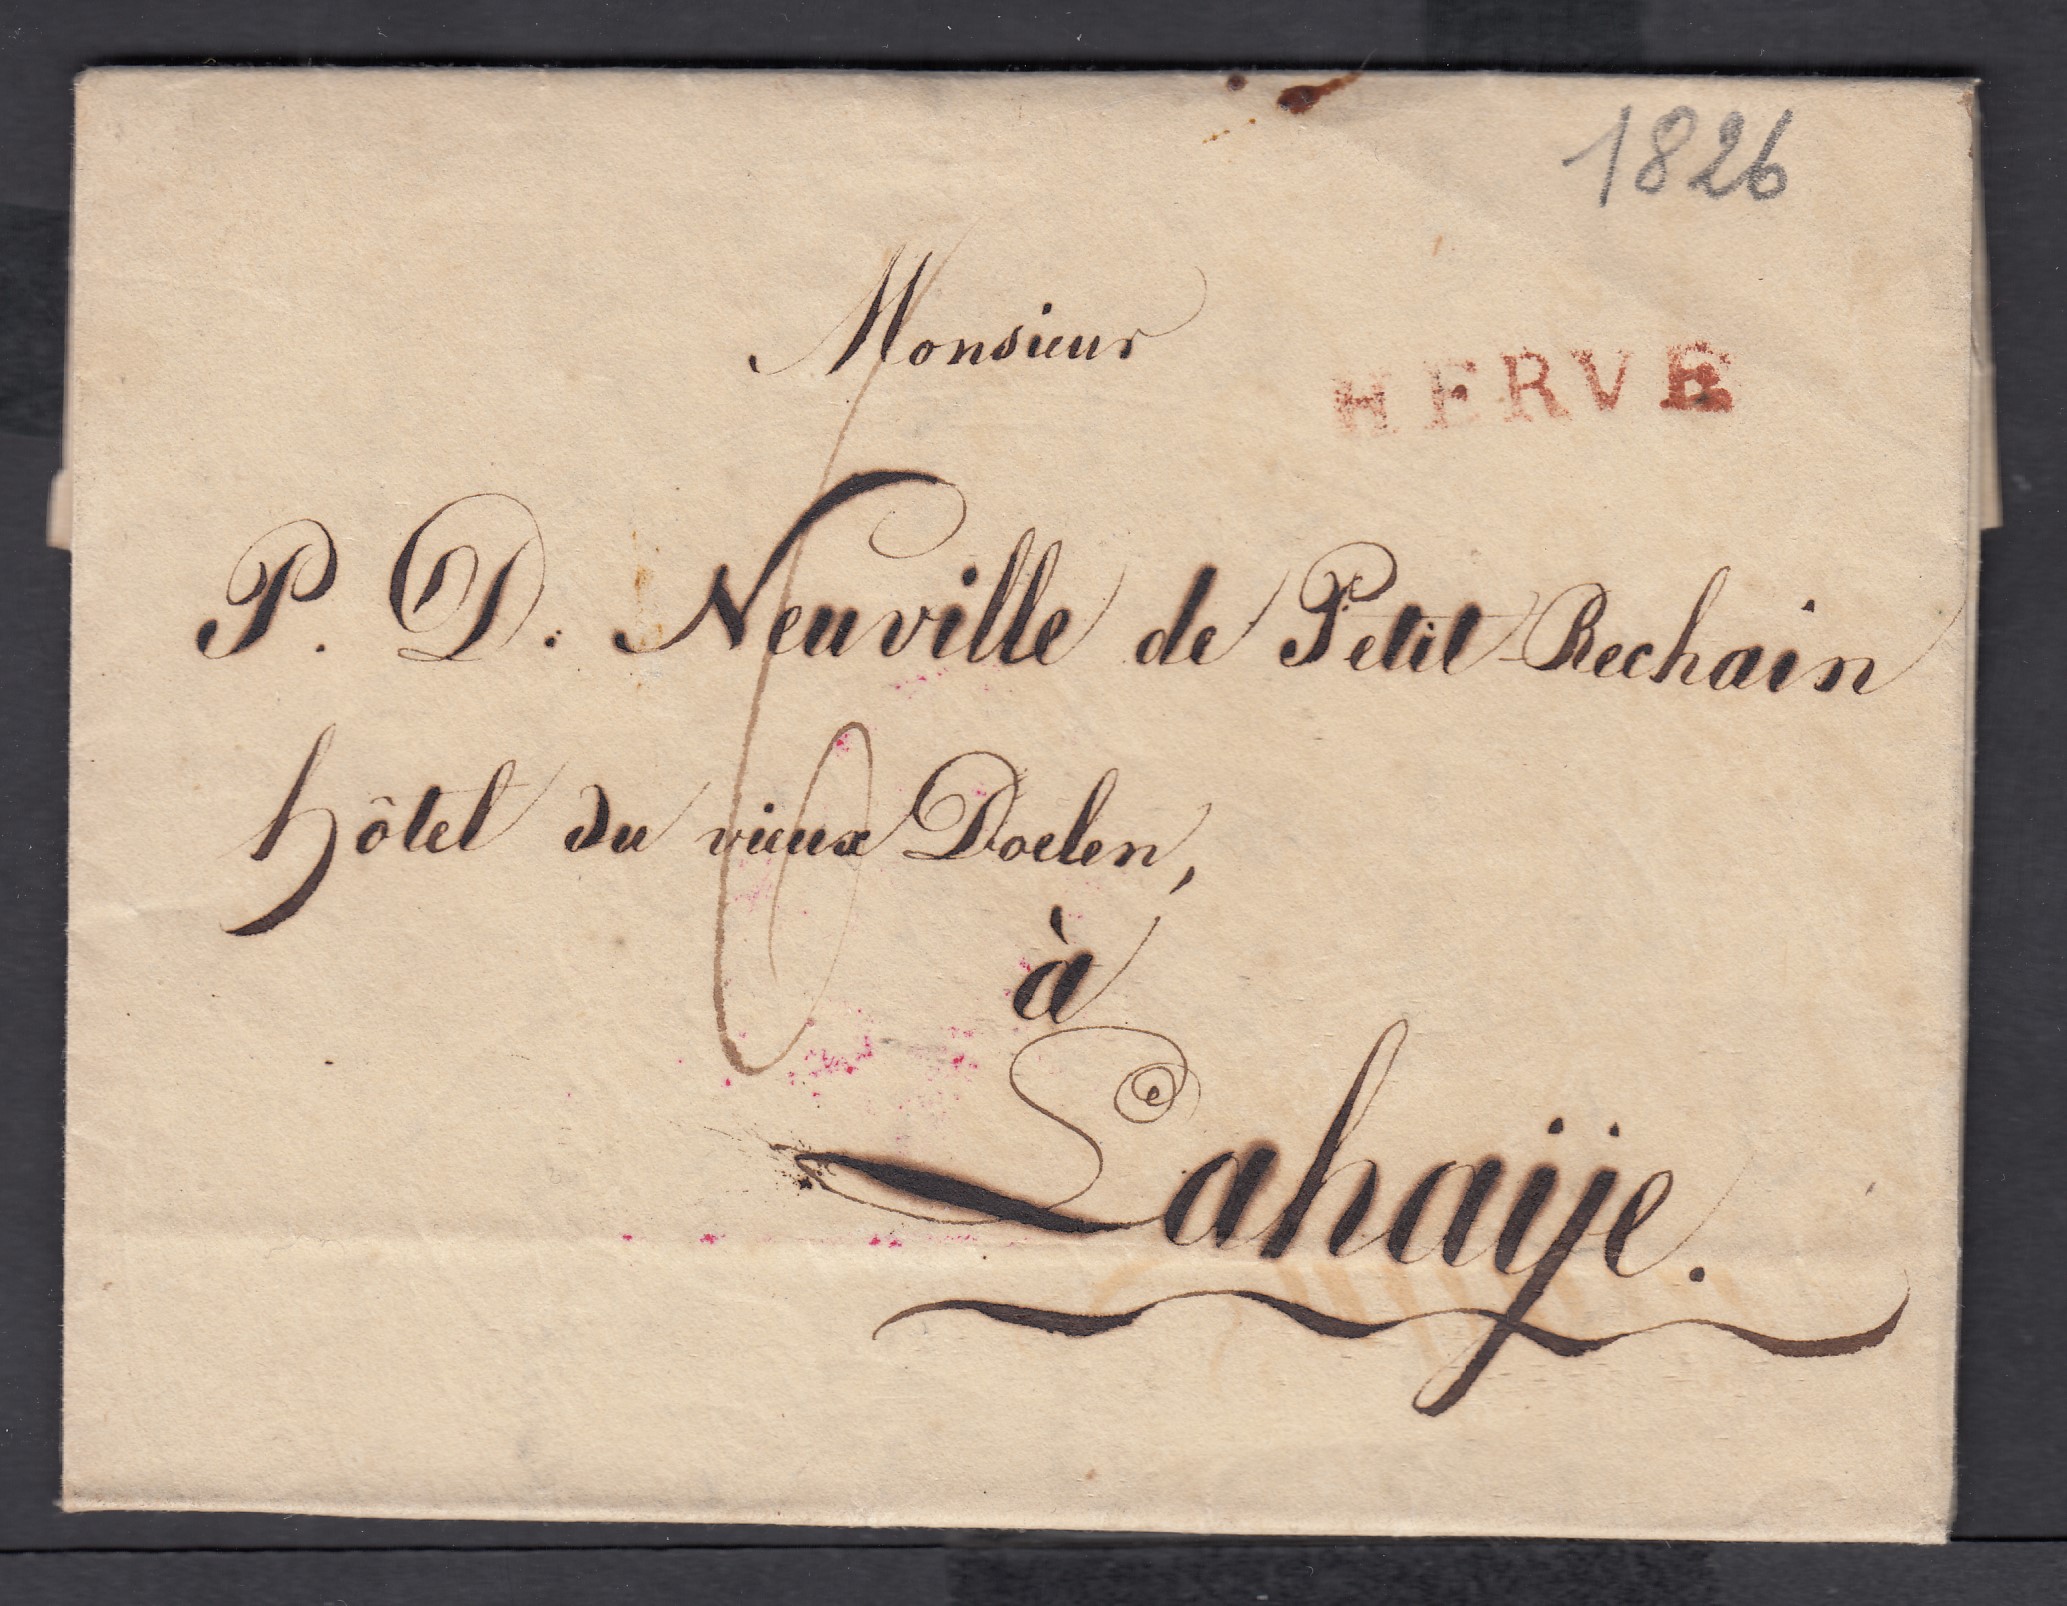 1826
Monsieur
HERVE
P. D. Neuville de Petit-Rechain
hôtel du vieux Doelen,
à
Lahaije.